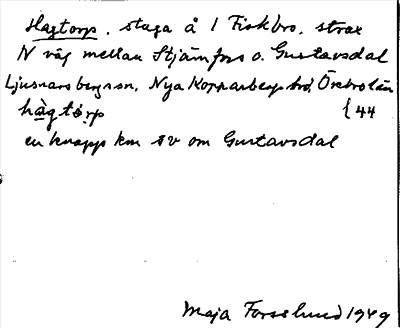 Hagtorp, stuga å 1 Fiskbro, strax
N väg mellan Stjärnfors o. Gustavsdal
Ljusnarsbergs sn, Nya Kopparbergs hd Örebro län
hàgtǫrp {44
en knapp km SV om Gustavsdal
Maja Forsslund 1949